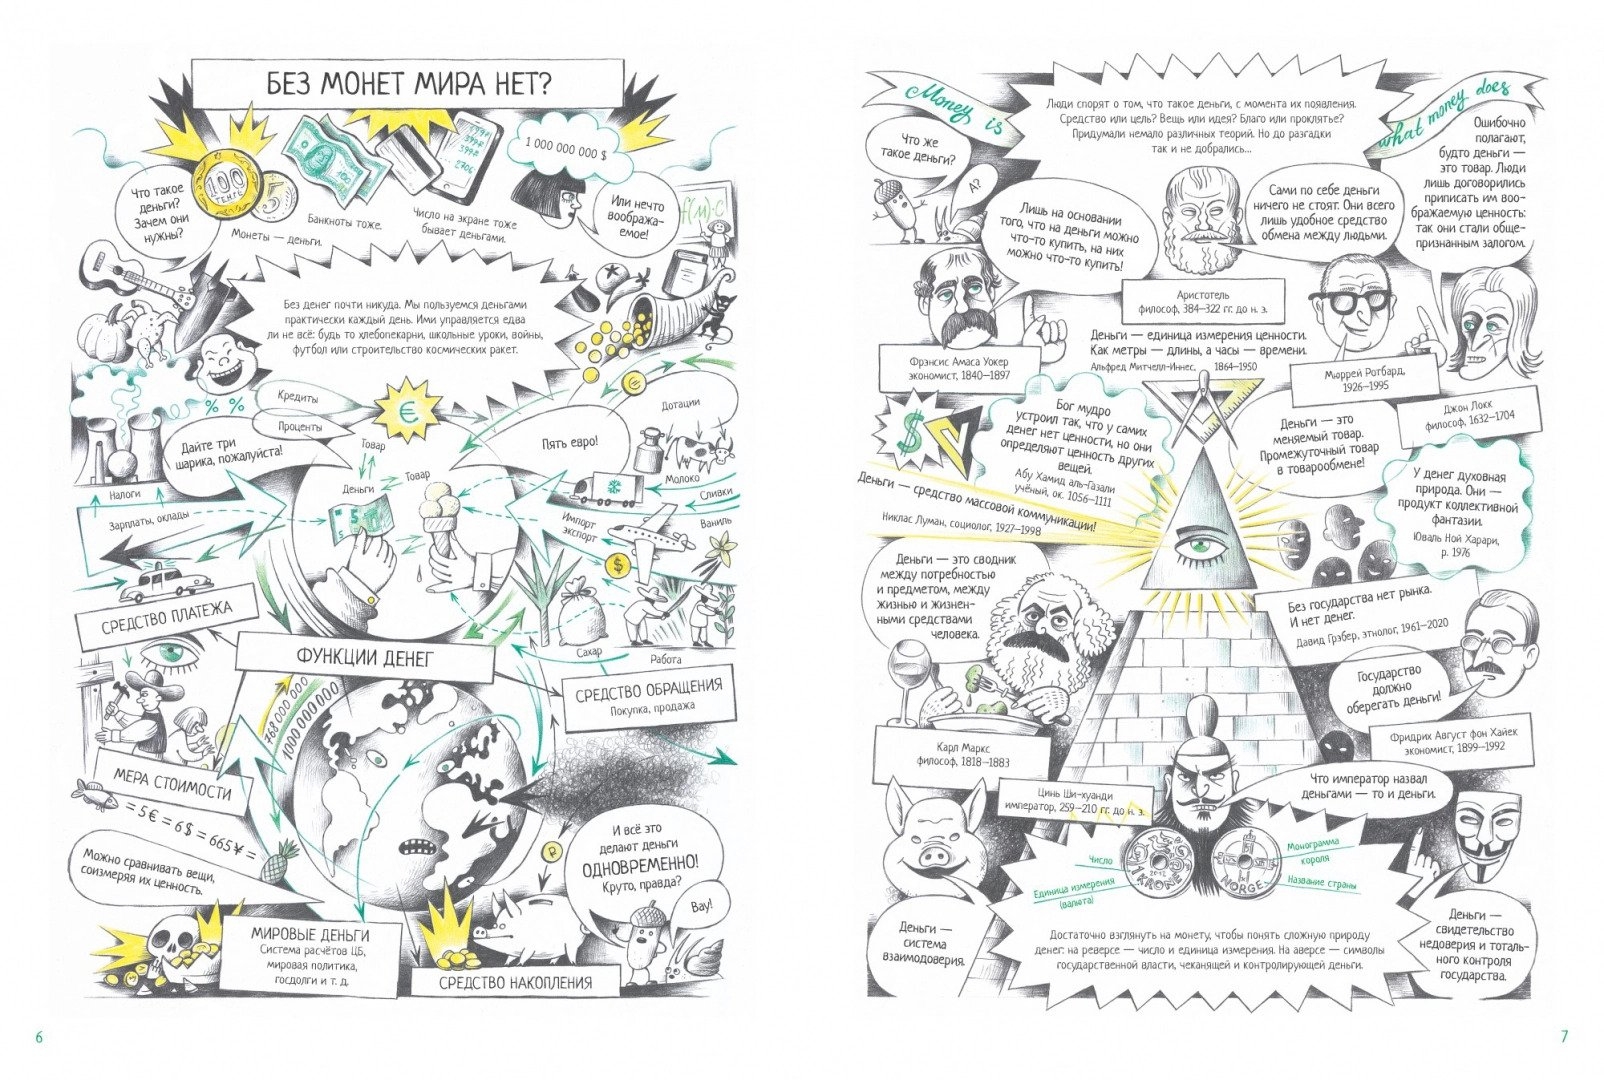 БЕЗ МОНЕТ МИРА НЕТ?
Что такое
деньги?
Зачем они
нужны?
100
ТЕНГЕ
5
Монеты — деньги.
Банкноты тоже.
100
Число на экране тоже
бывает деньгами.
1 000 000 000 $
Или нечто
вообража-
емое!
Без денег почти никуда. Мы пользуемся деньгами
практически каждый день. Ими управляется едва
ли не всё: будь то хлебопекарни, школьные уроки, войны,
футбол или строительство космических ракет.
% %
Кредиты
Проценты
€
€
Дотации
Дайте три
шарика, пожалуйста!
Товар
Пять евро!
Деньги
Товар
5
Молоко
Сливки
Налоги
Зарплаты, оклады
Импорт
экспорт
Ваниль
$
СРЕДСТВО ПЛАТЕЖА
Сахар
Работа
ФУНКЦИИ ДЕНЕГ
СРЕДСТВО ОБРАЩЕНИЯ
Покупка, продажа
768 000 000
1000 000 000
МЕРА СТОИМОСТИ
= 5 € = 6 $ = 665 ¥ =
Можно сравнивать вещи,
соизмеряя их ценность.
₽
И всё это
делают деньги
ОДНОВРЕМЕННО!
Круто, правда?
Вау!
МИРОВЫЕ ДЕНЬГИ
Система расчётов ЦБ,
мировая политика,
госдолги и т. д.
СРЕДСТВО НАКОПЛЕНИЯ
6
Money is
what money does
Люди спорят о том, что такое деньги, с момента их появления.
Средство или цель? Вещь или идея? Благо или проклятье?
Придумали немало различных теорий. Но до разгадки
так и не добрались...
Что же
такое деньги?
А?
Лишь на основании
того, что на деньги можно
что-то купить, на них
можно что-то купить!
Фрэнсис Амаса Уокер
экономист, 1840–1897
Сами по себе деньги
ничего не стоят. Они всего
лишь удобное средство
обмена между людьми.
Аристотель
философ, 384–322 гг. до н. э.
Ошибочно
полагают,
будто деньги —
это товар. Люди
лишь договорились
приписать им воо-
бражаемую ценность:
так они стали обще-
признанным залогом.
Джон Локк
философ, 1632–1704
Деньги — единица измерения ценности.
Как метры — длины, а часы — времени.
Альфред Митчелл-Иннес, 1864–1950
Мюррей Ротбард,
1926–1995
Деньги — это
меняемый товар.
Промежуточный товар
в товарообмене!
$
Бог мудро
устроил так, что у самих
денег нет ценности, но они
определяют ценность других
вещей.
Абу Хамид аль-Газали
учёный, ок. 1056–1111
Деньги — средство массовой коммуникации!
Никлас Луман, социолог, 1927–1998
У денег духовная
природа. Они —
продукт коллективной
фантазии.
Юваль Ной Харари,
р. 1976
Деньги — это сводник
между потребностью
и предметом, между
жизнью и жизнен-
ными средствами
человека.
Карл Маркс
философ, 1818–1883
Без государства нет рынка.
И нет денег.
Давид Грэбер, этнолог, 1961–2020
Государство
должно
оберегать деньги!
Фридрих Август фон Хайек
экономист, 1899–1992
Цинь Ши-хуанди
император, 259–210 гг. до н. э.
Что император назвал
деньгами — то и деньги.
Число
Единица измерения
(валюта)
1 KRONE
2012
NORGE
Монограмма
короля
Название страны
Деньги —
система
взаимодоверия.
Достаточно взглянуть на монету, чтобы понять сложную природу
денег: на реверсе — число и единица измерения. На аверсе — символы
государственной власти, чеканящей и контролирующей деньги.
Деньги —
свидетельство
недоверия и тоталь-
ного контроля
государства.
7